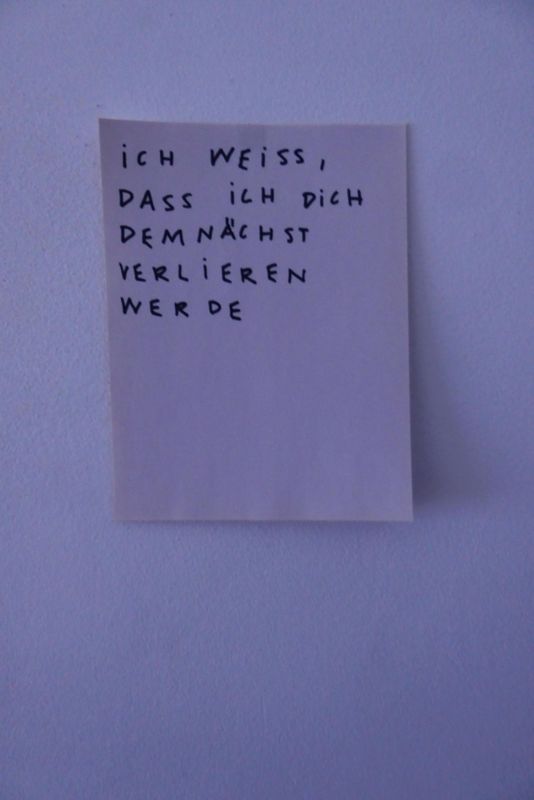 iCH WEiSS,
DASS iCH DiCH
DEMNÄCHST
VERLiEREN
WERDE